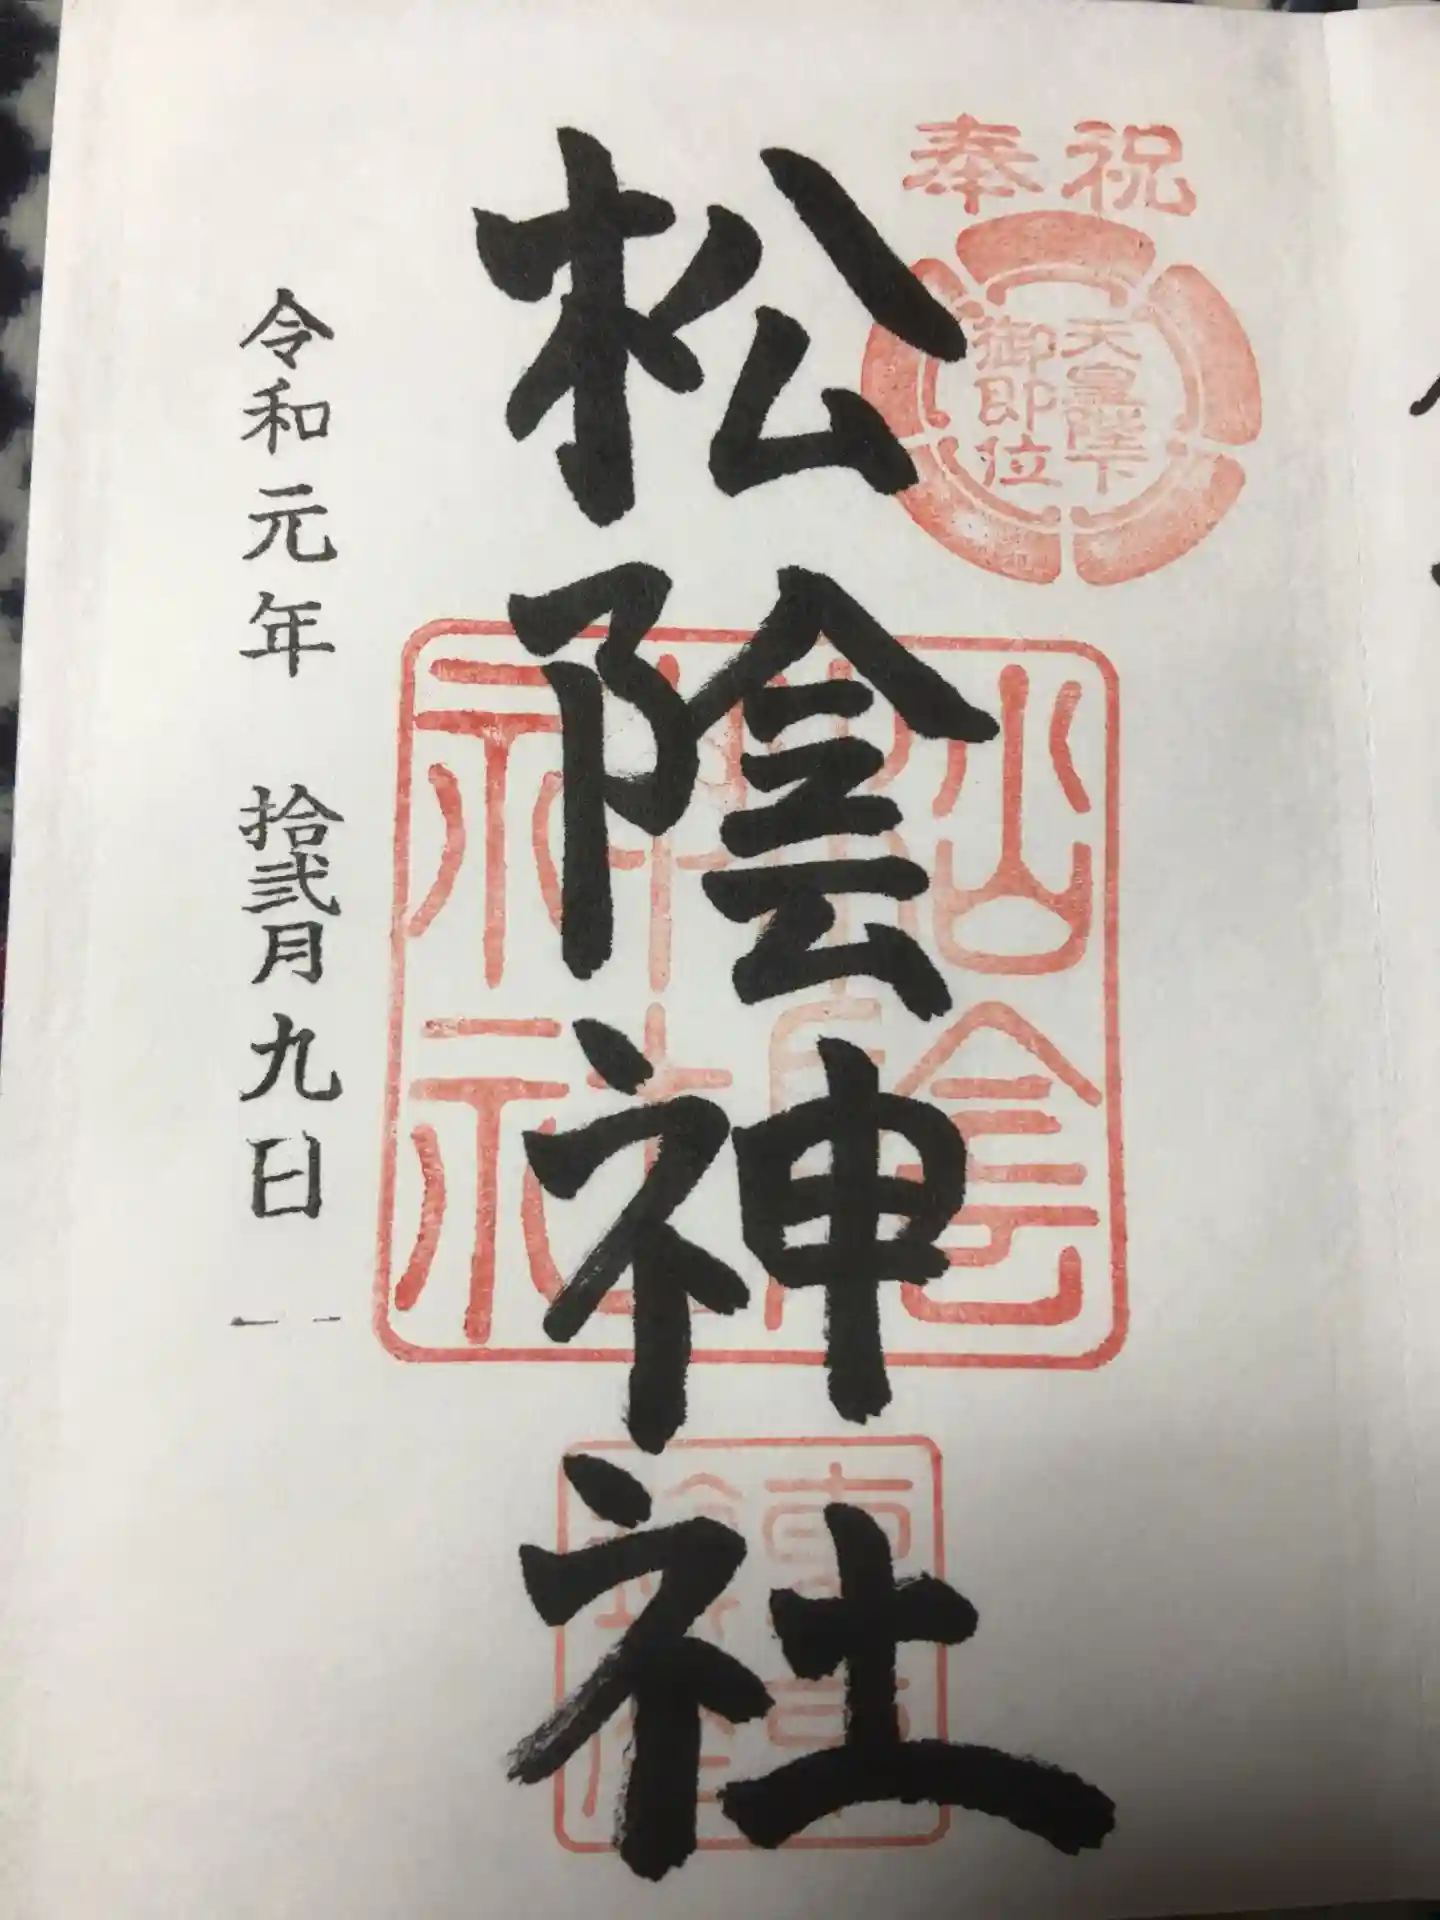 奉祝
天皇陛下
御即位
松陰神社
松陰
神社
令和元年 拾弐月九日